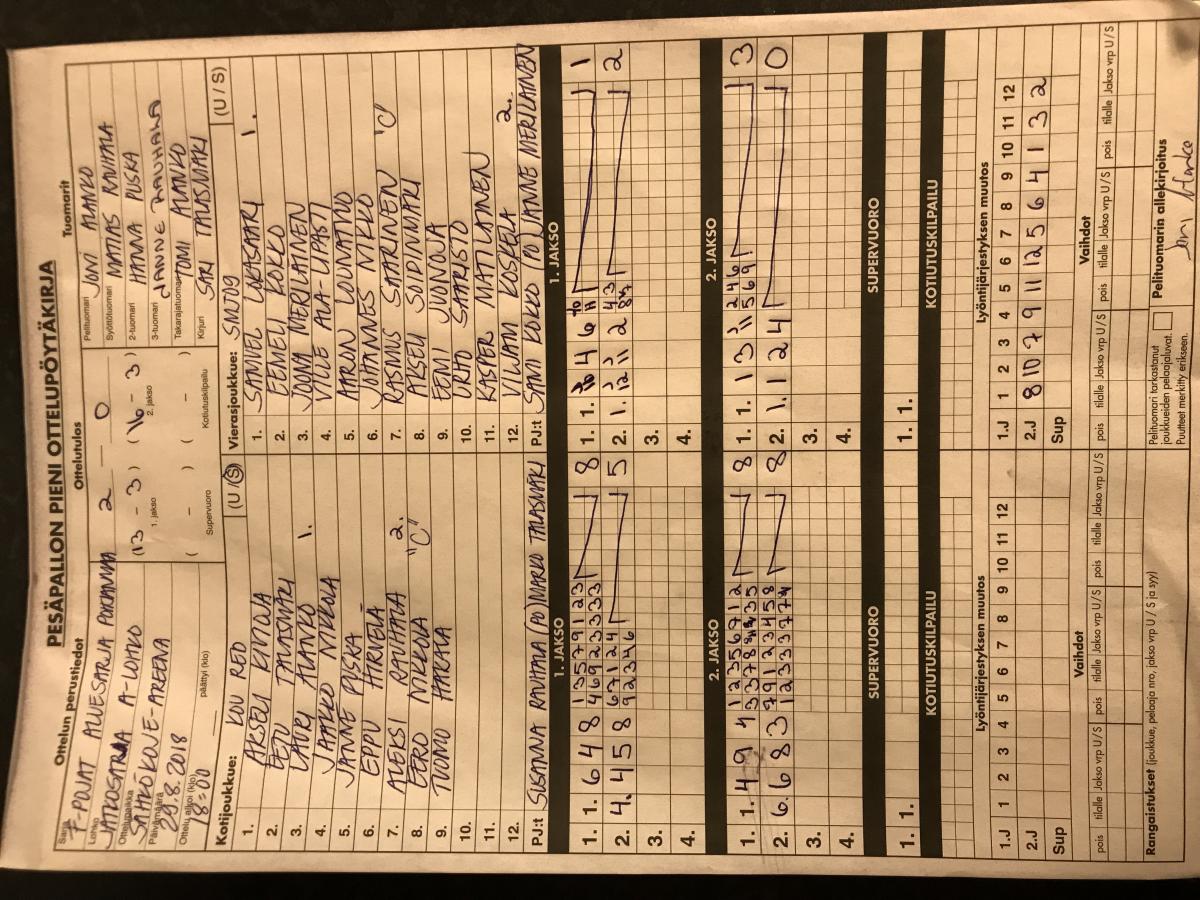 PESÄPALLON PIENI OTTELUPÖYTÄKIRJA
Ottelun perustiedot
Ottelutulos
Tuomarit
Sarja F-POJAT ALUESARJA POHJANMAA
Lohko JATKOSARJA A-LOHKO
Ottelupaikka SÄHKÖKOJE-AREENA
Päivämäärä 29.8.2018
Ottelu alkoi (klo) 18:00 päättyi (klo)
2 — 0
(13 - 3) (16 - 3)
1. jakso 2. jakso
( - ) ( - )
Supervuoro Kotiutuskilpailu
Pelituomari JONI ALANKO
Syöttötuomari MATIAS RAUHALA
2-tuomari HANNA PUSKA
3-tuomari JANNE RAUHALA
Takarajatuomari TOMI ALANKO
Kirjuri SARI TALASMÄKI
Kotijoukkue: KOU RED (U / S)
1. AKSELI KIVIOJA
2. EETU TALASMÄKI
3. LAURI ALANKO 1.
4. JAAKKO NIKKOLA
5. JANNE PUSKA
6. EPPU HIRVELÄ
7. ALEKSI RAUHALA 2.
8. EERO NIKKOLA "C"
9. TUOMO HAKALA
10.
11.
12.
PJ:t SUSANNA RAUHALA (PJ) MARKO TALASMÄKI
Vierasjoukkue: SMJ09 (U / S)
1. SANTERI LUKASAARI 1.
2. EEMELI KOKKO
3. JOONA MERILÄINEN
4. VILLE ALA-LIPASTI
5. AARON LOUNATVO
6. JOHANNES NIKKO
7. RASMUS SAARINEN "C"
8. AKSELI SOPINMÄKI
9. EEMI JUNOJA
10. URHO SAARISTO
11. KASPER MATILAINEN
12. VILJAMI KOSKELA 2.
PJ:t SAMI KOKKO PJ JANNE MERILÄINEN
1. JAKSO
1. JAKSO
1. 1. 6 4 8 1 3 5 7 9 1 2 3 8
4 6 9 2 3 3 3 3
2. 4. 4 5 8 6 7 1 2 4 5
9 2 3 4 6
3.
4.
1. 1. 4 6 1
2. 1. 2 2
3.
4.
2. JAKSO
2. JAKSO
1. 1. 4 9 4 1 2 3 5 6 7 1 2 8
2. 6. 6 8 3 7 9 1 2 3 4 5 8 8
3.
4.
1. 1. 1 3 11 2 4 6 3
5 6 9
2. 1. 1 2 4 0
3.
4.
SUPERVUORO
SUPERVUORO
1. 1.
1. 1.
KOTIUTUSKILPAILU
KOTIUTUSKILPAILU
Lyöntijärjestyksen muutos
1.J 1 2 3 4 5 6 7 8 9 10 11 12
2.J
Sup
Lyöntijärjestyksen muutos
1.J 1 2 3 4 5 6 7 8 9 10 11 12
2.J 8 10 7 9 11 12 5 6 4 1 3 2
Sup
Vaihdot
pois tilalle Jakso vrp U / S pois tilalle Jakso vrp U / S pois tilalle Jakso vrp U / S
Vaihdot
pois tilalle Jakso vrp U / S pois tilalle Jakso vrp U / S pois tilalle Jakso vrp U / S
Rangaistukset (joukkue, pelaaja nro, jakso vrp U / S ja syy)
Pelituomari tarkastanut
joukkueiden pelaajaluvat.
Puutteet merkitty erikseen.
Pelituomarin allekirjoitus
Joni Alanko